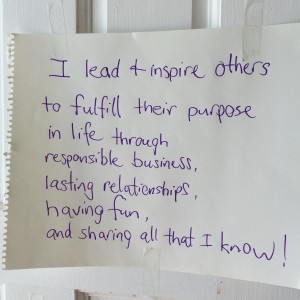 I lead + inspire others
to fulfill their purpose
in life through
responsible business,
lasting relationships,
having fun,
and sharing all that I know!